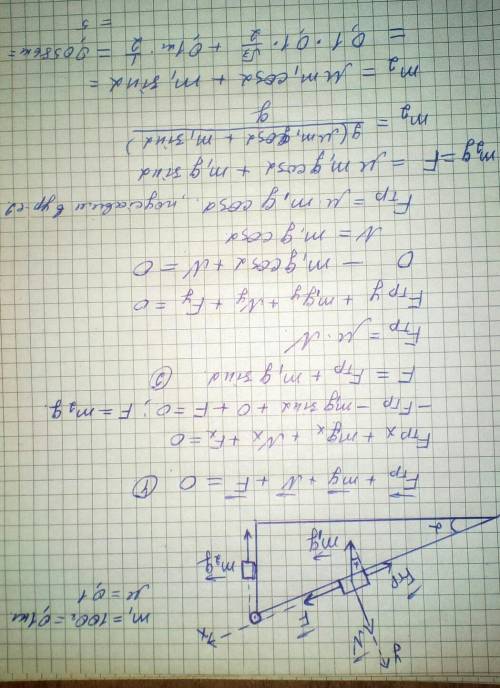 m₁=100г=0,1кг
μ=0,1
y
N
F
x
Fтр
m₁g
m₂g
α
Fтр + mg + N + F = 0 (1)
Fтр x + mgx + Nx + Fx = 0
-Fтр - mg sinα + 0 + F = 0; F = m₂g.
F = Fтр + m₁g sinα (2)
Fтр = μ · N
Fтр y + m₁gy + Ny + Fy = 0
0 - m₁g cosα + N = 0
N = m₁g cosα
Fтр = μ m₁g cosα, подставим в ур-е 2
m₂g = F = μ m₁g cosα + m₁g sinα
m₂ = g(μ m₁ cosα + m₁ sinα) / g
m₂ = μ m₁ cosα + m₁ sinα =
= 0,1 · 0,1 · √3/2 + 0,1кг · 1/2 = 0,0586кг =
= 5